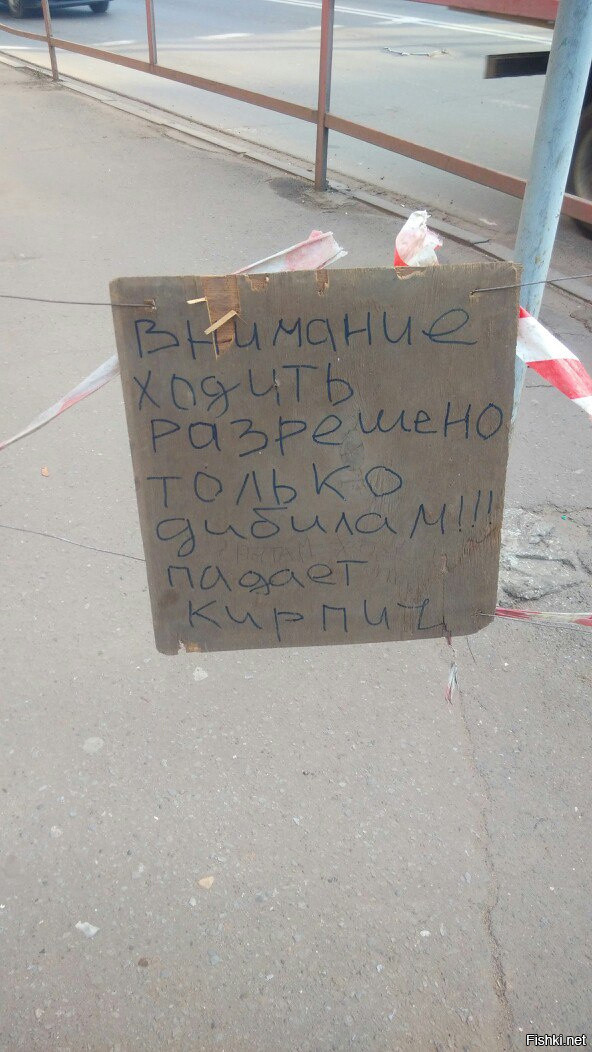 внимание
ходить
разрешено
только
дибилам!!!
падает
кирпич
Fishki.net